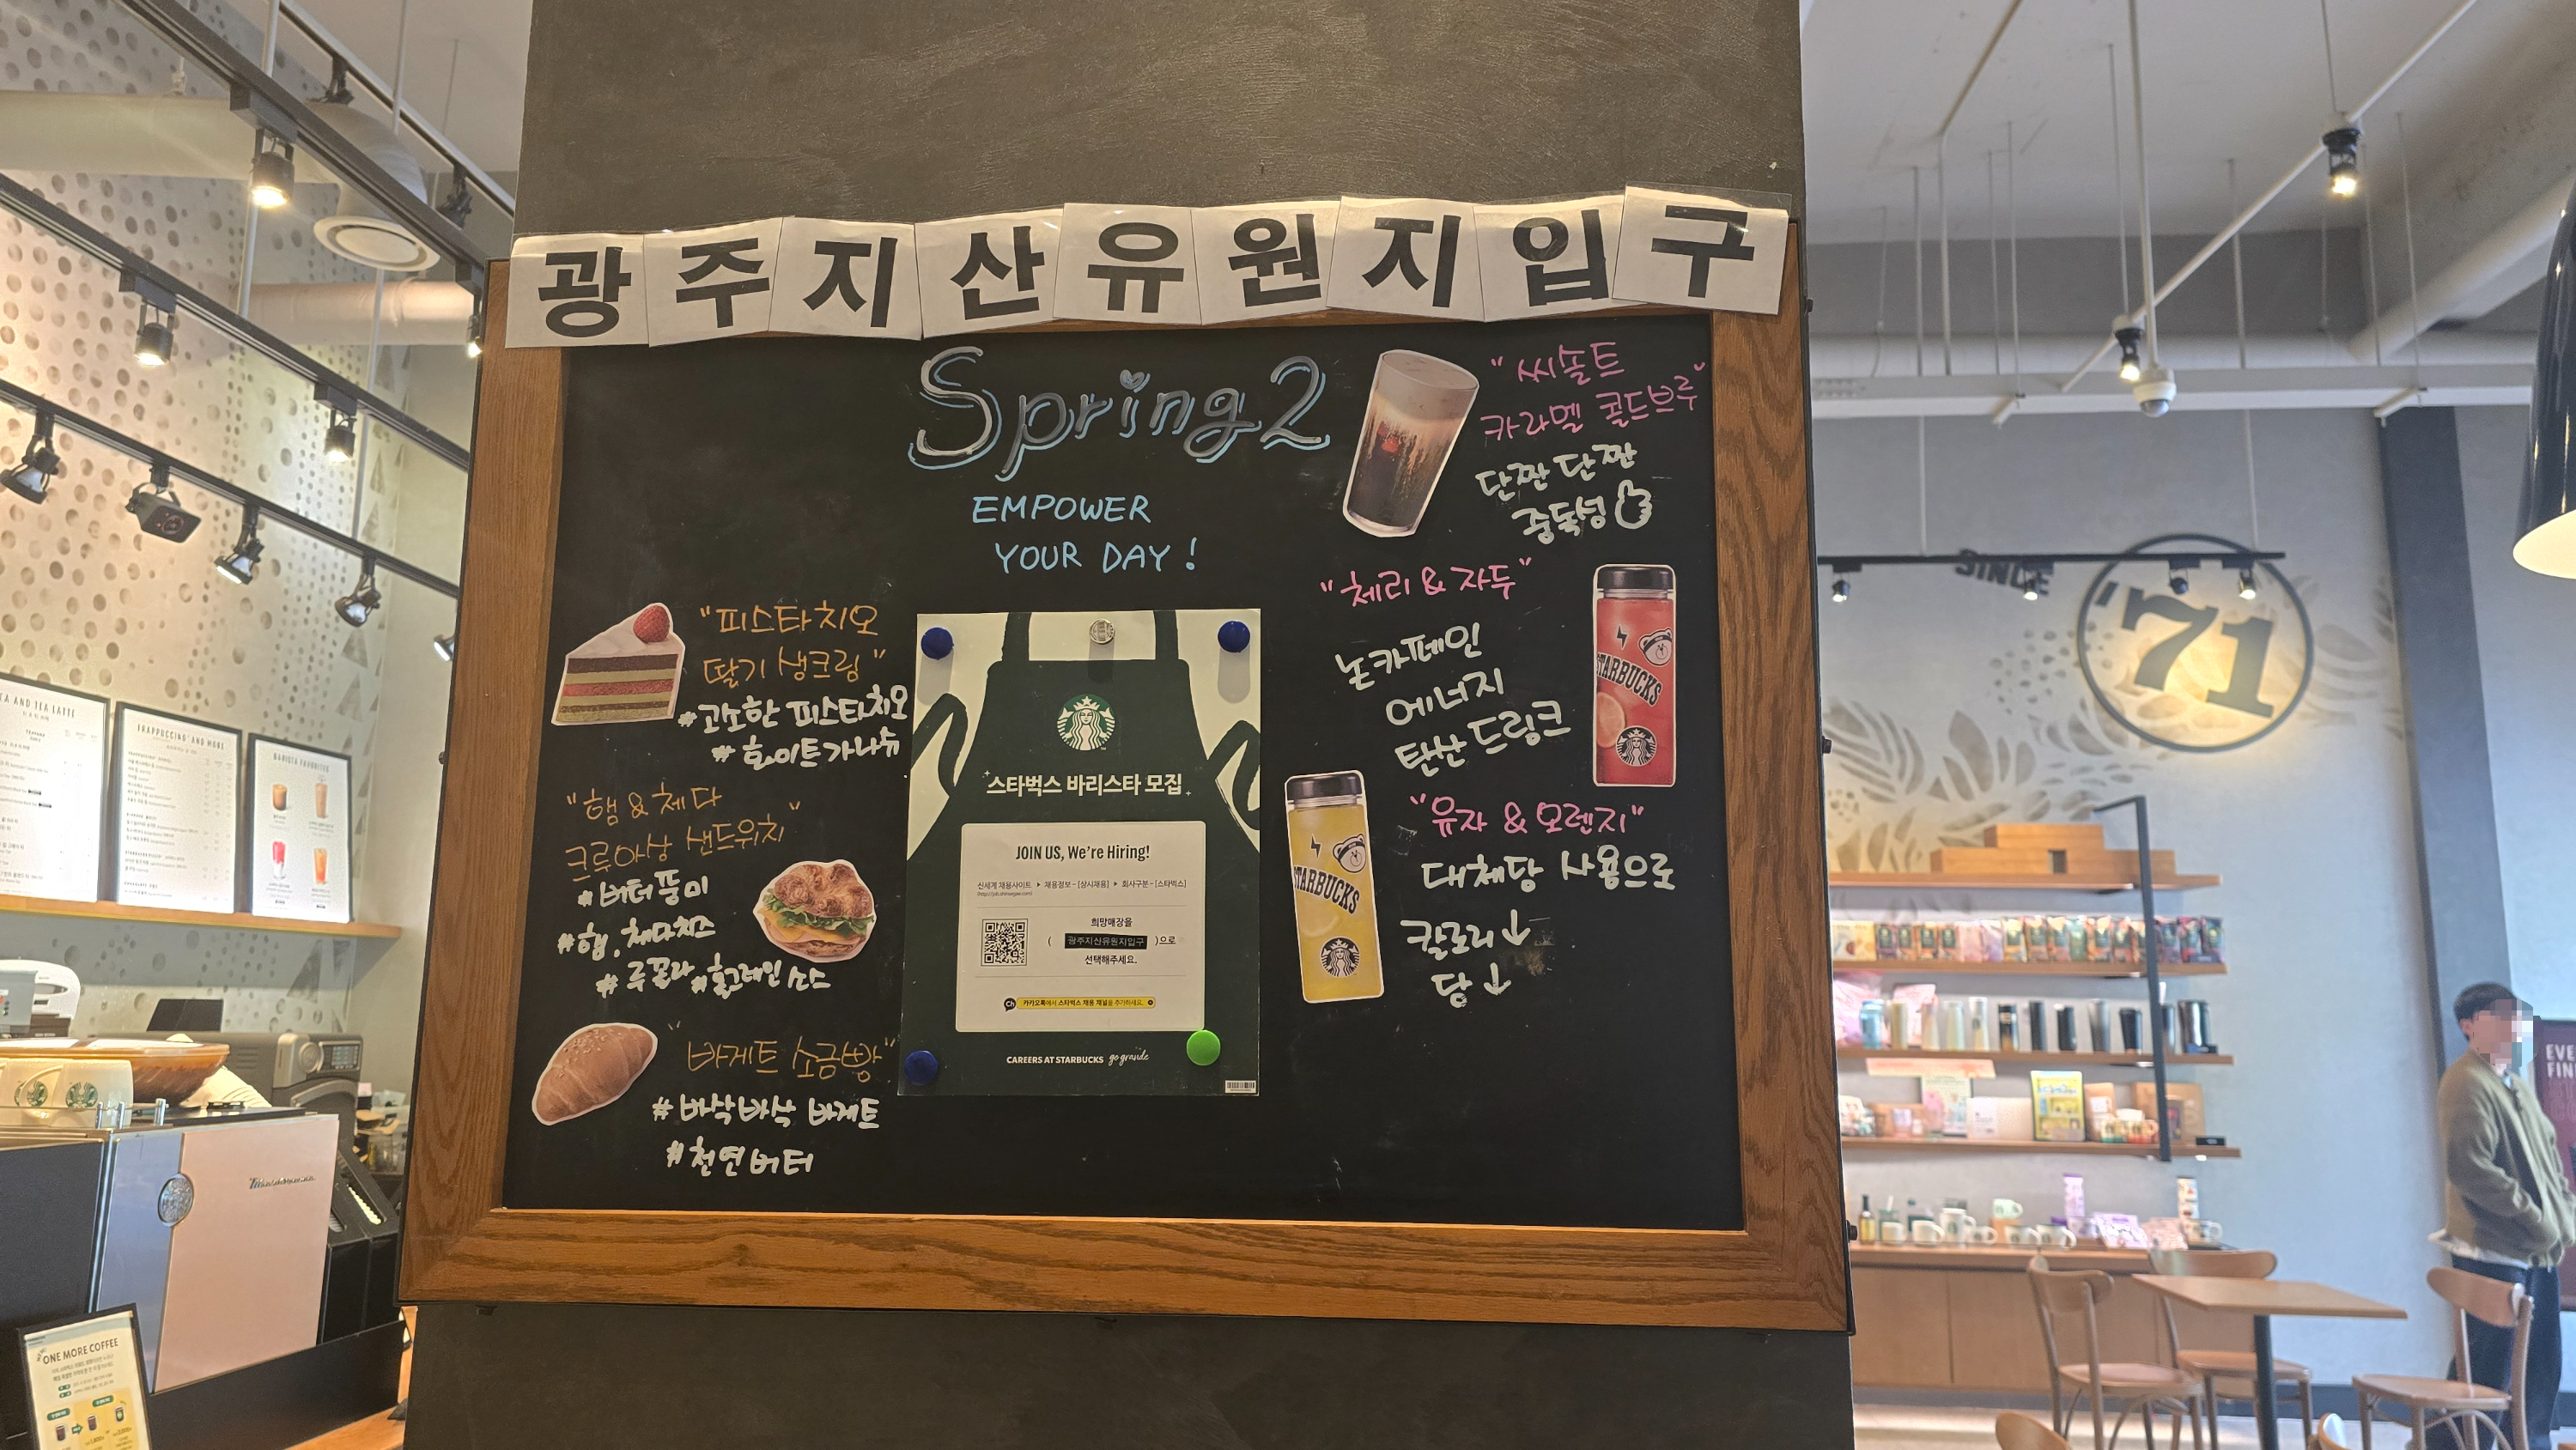 광주지산유원지입구
Spring2
EMPOWER
YOUR DAY!
"피스타치오
딸기 생크림"
#고소한 피스타치오
#화이트가나슈
"햄&체다
크루아상 샌드위치"
#버터풍미
#햄, 체다치즈
#루꼴라 #홀그레인 소스
"바게트 소금빵"
#바삭바삭 바게트
#천연버터
스타벅스 바리스타 모집
JOIN US, We're Hiring!
신세계 채용사이트 ▶ 채용정보-[상시채용] ▶ 회사구분-[스타벅스]
희망매장을
( 광주지산유원지입구 )으로
선택해주세요.
Ch 카카오톡에서 스타벅스 채용 채널을 추가하세요.
CAREERS AT STARBUCKS go grande
"씨솔트
카라멜 콜드브루"
단짠단짠
중독성
"체리&자두"
논카페인
에너지
탄산 드링크
STARBUCKS
"유자&오렌지"
대체당 사용으로
칼로리↓
당↓
STARBUCKS
SINCE
'71
TA AND TEA LATTE
FRAPPUCCINO AND MORE
BARISTA FAVORITES
ONE MORE COFFEE
EVE
FIN